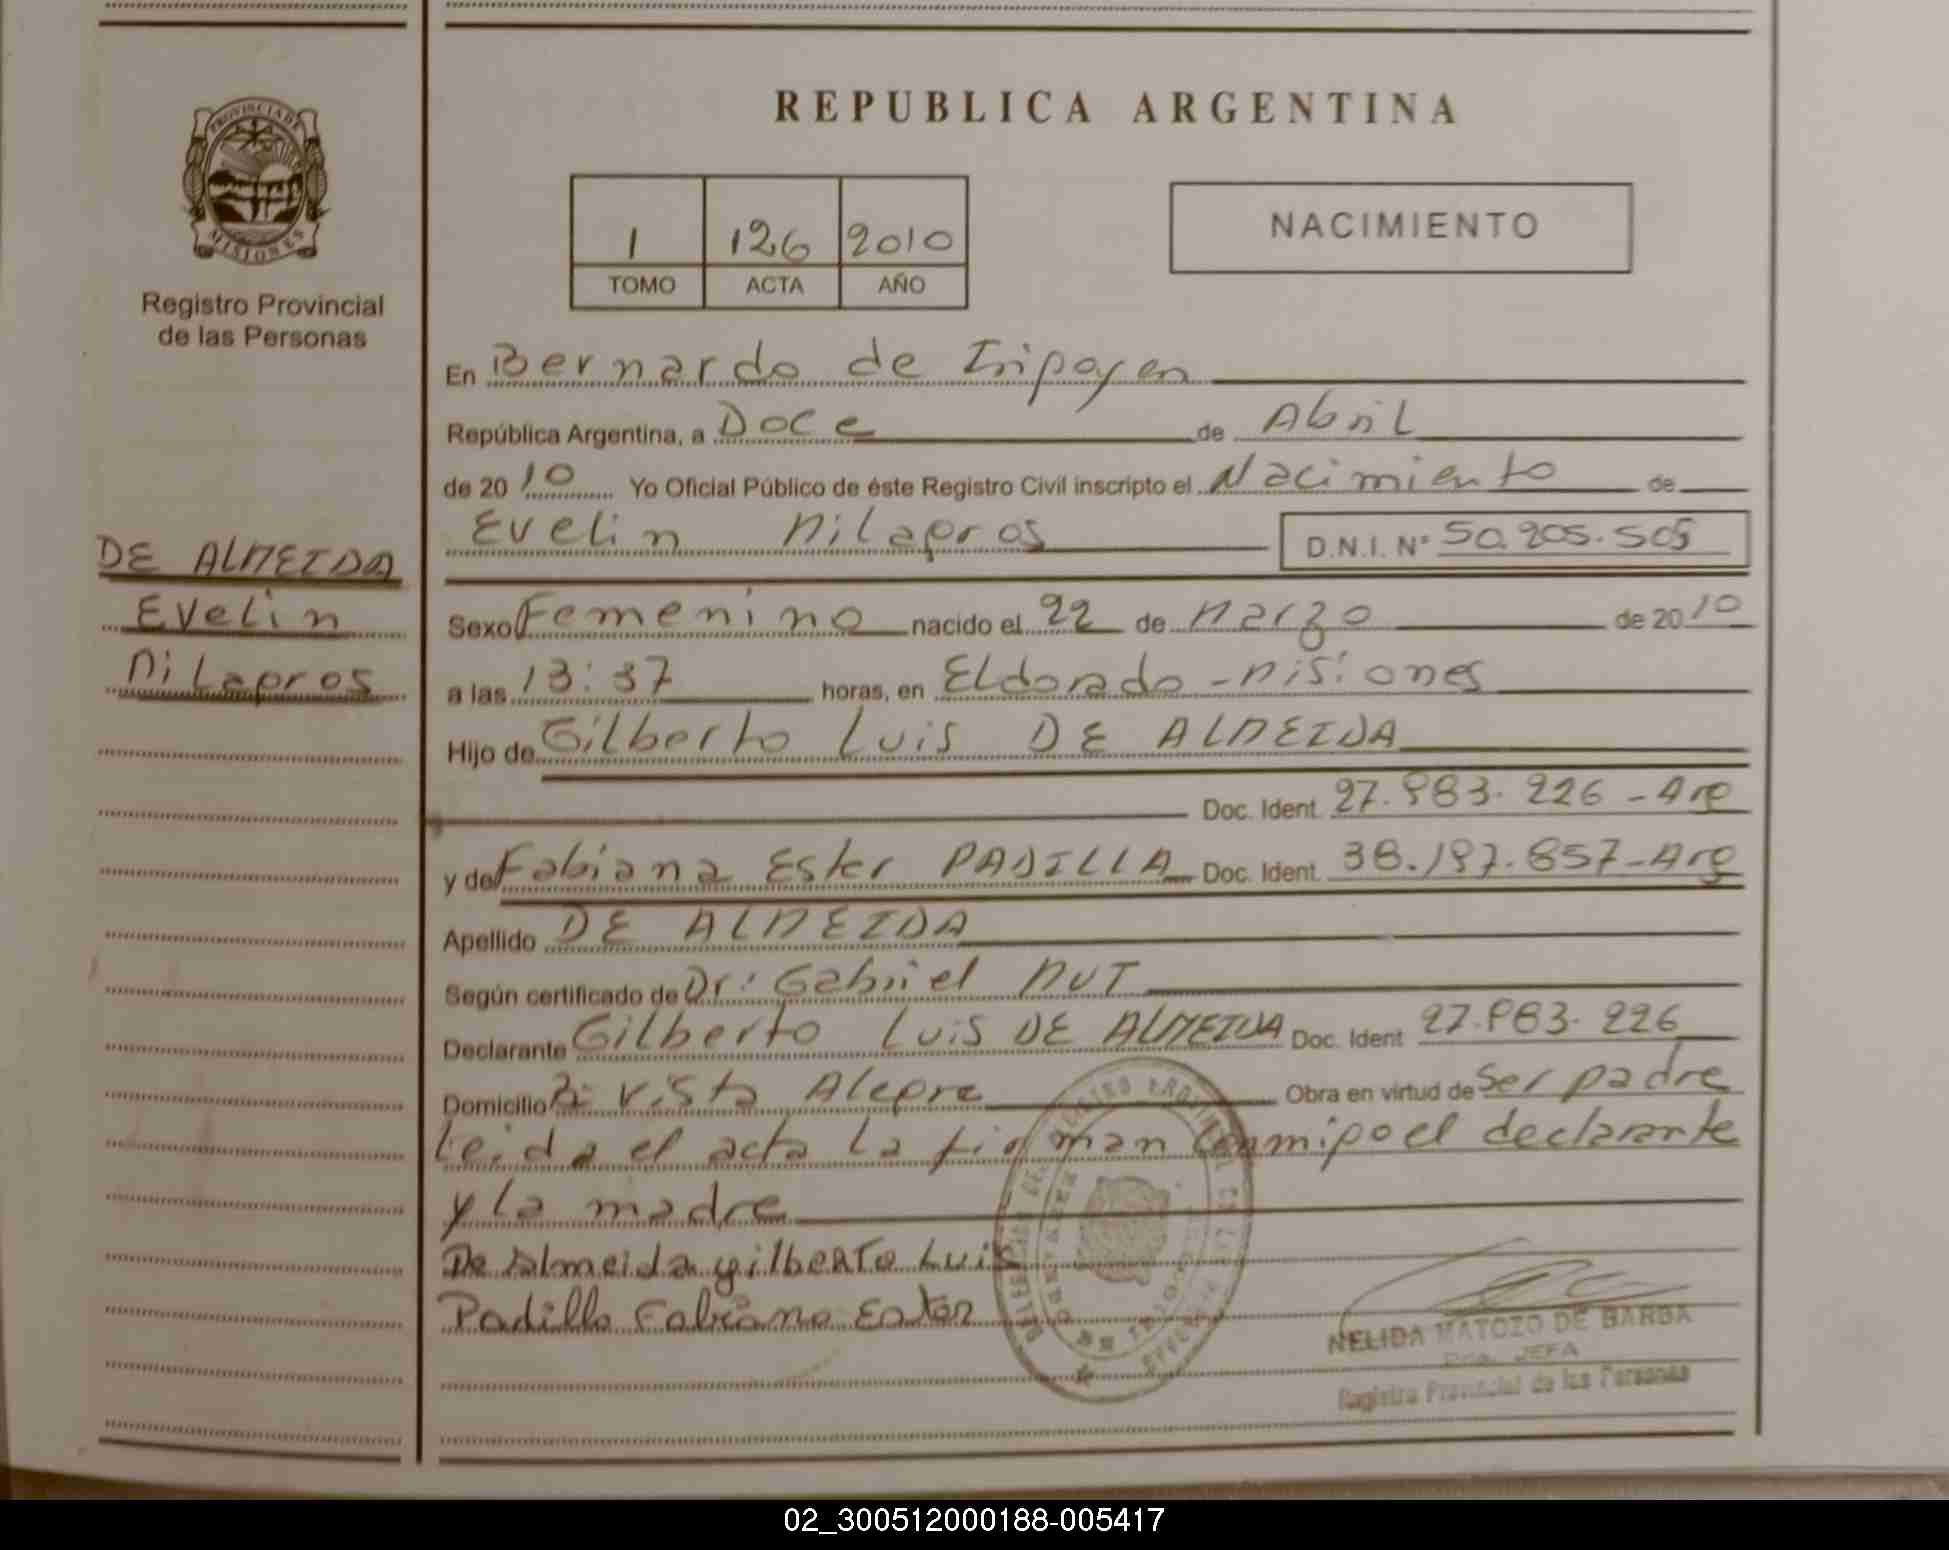 REPUBLICA ARGENTINA
PROVINCIA DE
MISIONES
Registro Provincial
de las Personas
1 126 2010
TOMO ACTA AÑO
NACIMIENTO
En Bernardo de Iripoyen
República Argentina, a Doce de Abril
de 20 10 Yo Oficial Público de éste Registro Civil inscripto el Nacimiento de
Evelin Milagros D.N.I. N° 50.205.505
DE ALMEIDA
Evelin
Milagros
Sexo Femenino nacido el 22 de Marzo de 20 10
a las 13:37 horas, en Eldorado - Misiones
Hijo de Gilberto Luis DE ALMEIDA
Doc. Ident. 27.983.226 - Arg
y de Fabiana Ester PADILLA Doc. Ident. 38.197.857 - Arg
Apellido DE ALMEIDA
Según certificado de Dr: Gabriel
Declarante Gilberto Luis DE ALMEIDA Doc. Ident 27.983.226
Domicilio Vista Alegre Obra en virtud de Ser padre
Leida el acta la firman conmigo el declarante
y la madre
De Almeida gilberto Luis
Padilla Fabiana Ester
NELIDA MATOZO DE BARBA
JEFA
Registro Provincial de las Personas
02_300512000188-005417